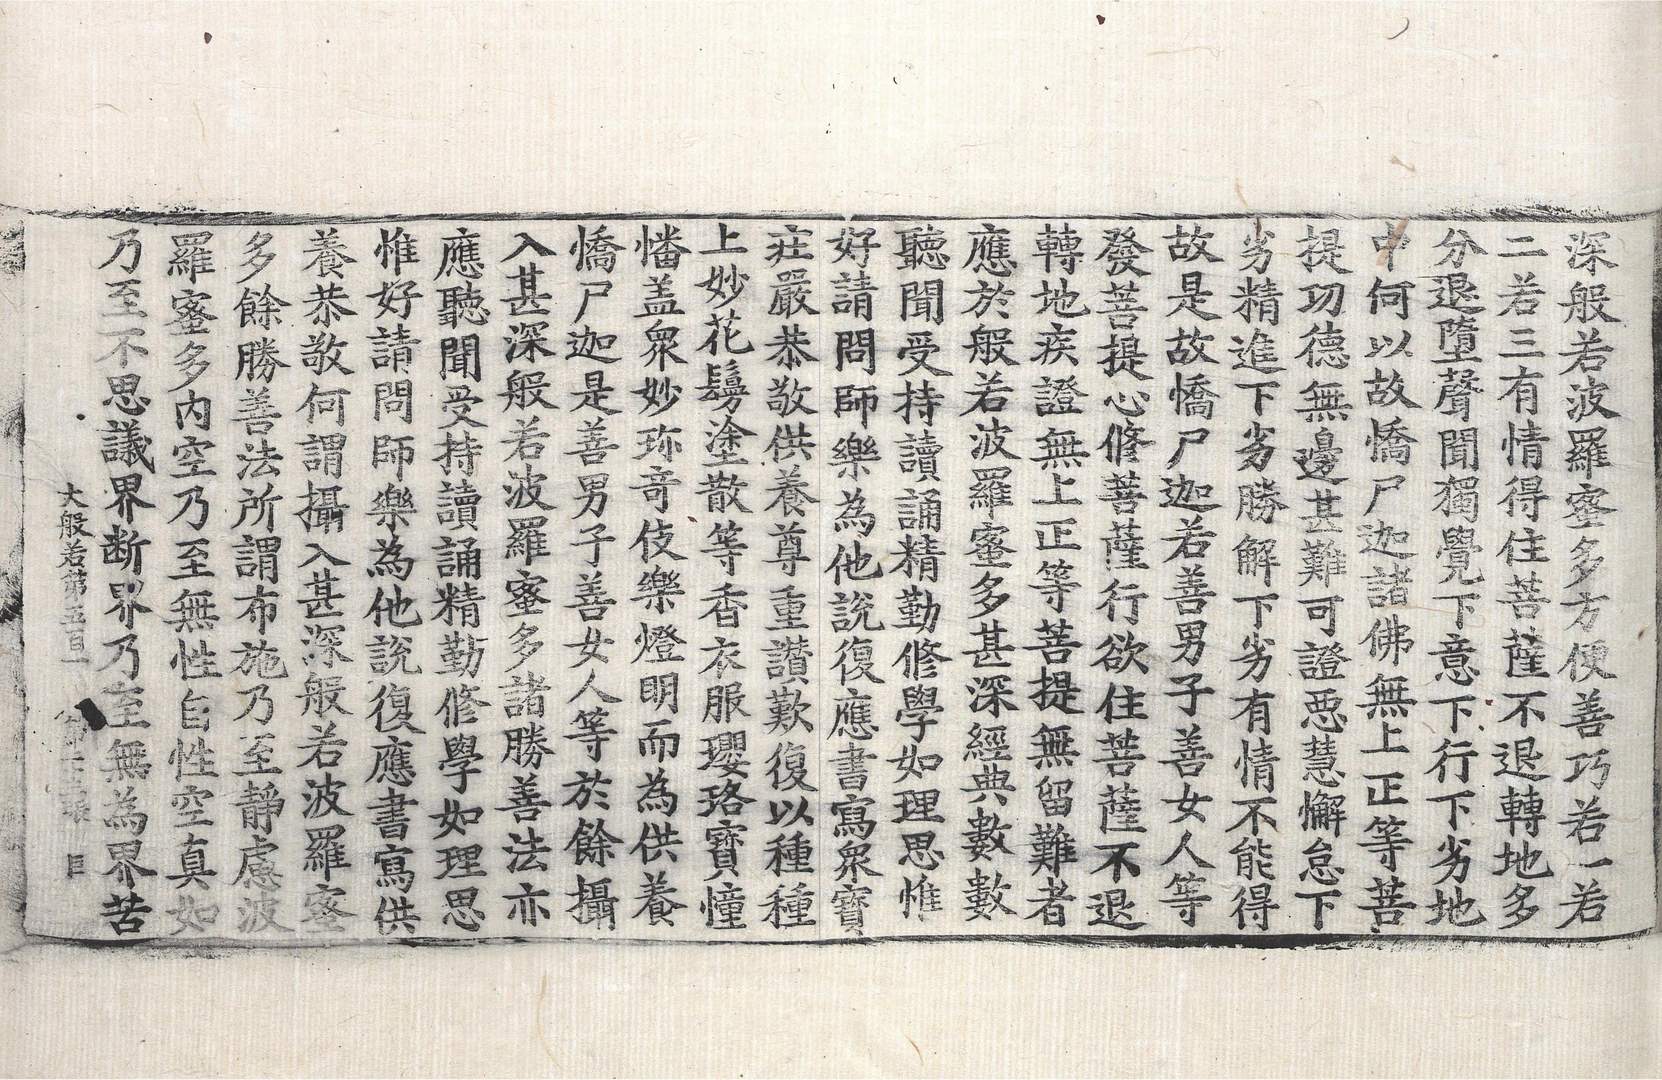 深般若波羅蜜多方便善巧若一若
二若三有情得住菩薩不退轉地多
分退墮聲聞獨覺下意下行下劣地
中何以故憍尸迦諸佛無上正等菩
提功德無邊甚難可證惡慧懈怠下
劣精進下劣勝解下劣有情不能得
故是故憍尸迦若善男子善女人等
發菩提心修菩薩行欲住菩薩不退
轉地疾證無上正等菩提無留難者
應於般若波羅蜜多甚深經典數數
聽聞受持讀誦精勤修學如理思惟
好請問師樂為他說復應書寫衆寶
莊嚴恭敬供養尊重讚歎復以種種
上妙花鬘塗散等香衣服瓔珞寶幢
幡盖衆妙珎奇伎樂燈明而為供養
憍尸迦是善男子善女人等於餘攝
入甚深般若波羅蜜多諸勝善法亦
應聽聞受持讀誦精勤修學如理思
惟好請問師樂為他說復應書寫供
養恭敬何謂攝入甚深般若波羅蜜
多餘勝善法所謂布施乃至靜慮波
羅蜜多內空乃至無性自性空真如
乃至不思議界断界乃至無為界苦
大般若第五百一 第二十張